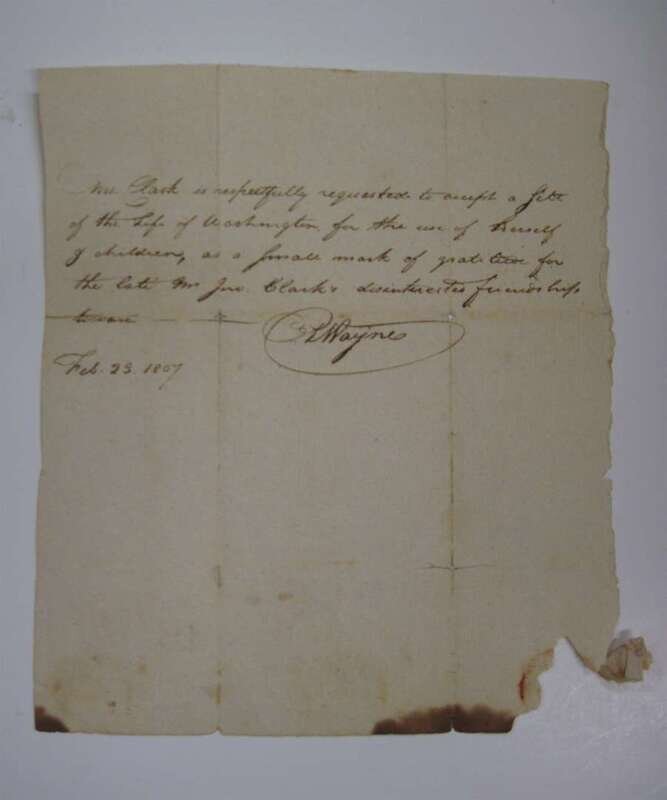 Mrs Clark is respectfully requested to accept a Sett
of the Life of Washington, for the use of herself
& children, as a small mark of gratitude for
the late Mr Jno. Clark's disinterested friendship
CP Wayne
Feb. 23. 1807